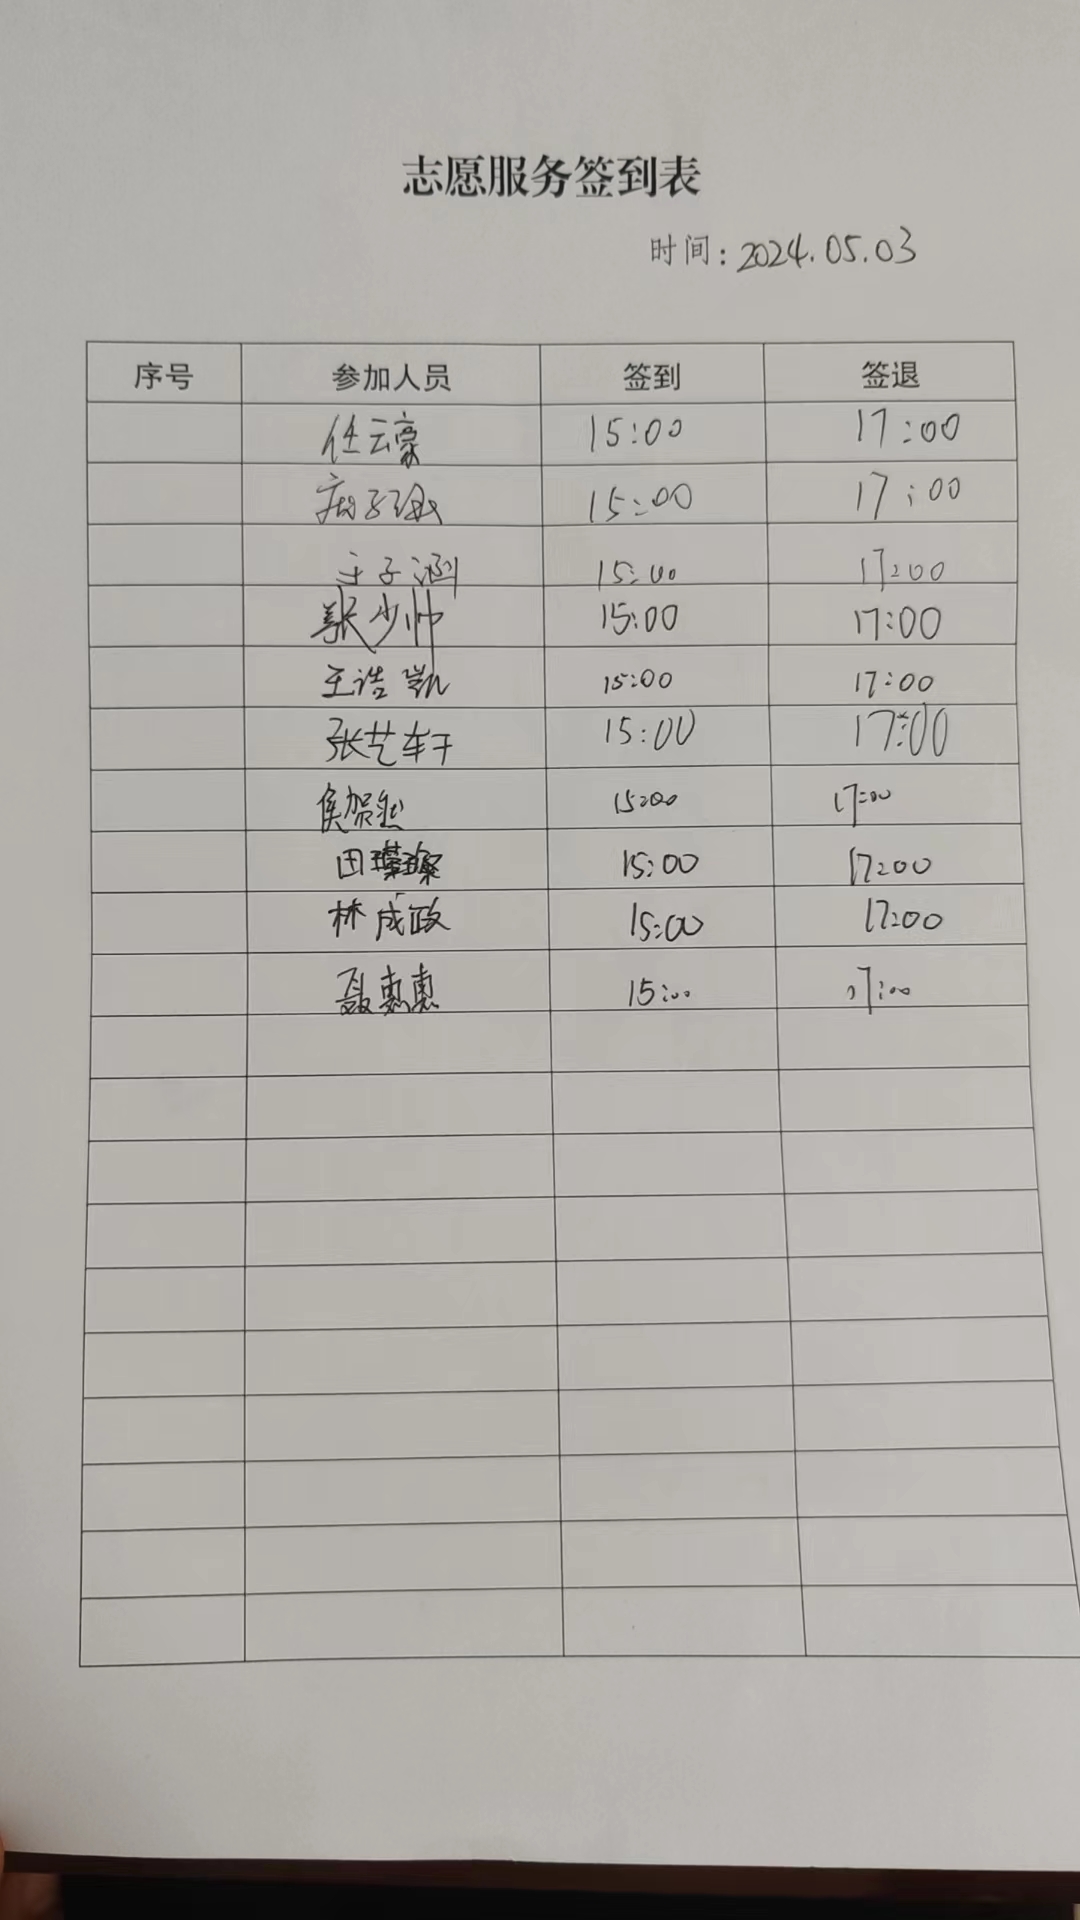 志愿服务签到表
时间：2024.05.03
序号 参加人员 签到 签退
任云豪 15:00 17:00
15:00 17:00
王子涵 15:00 17:00
张少帅 15:00 17:00
王浩凯 15:00 17:00
张艺轩 15:00 17:00
侯贺然 15:00 17:00
田璨璨 15:00 17:00
林成政 15:00 17:00
聂惠惠 15:00 17:00